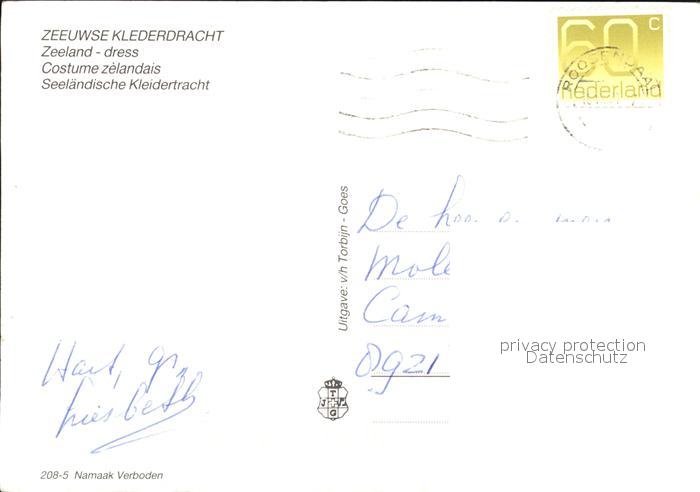 ZEEUWSE KLEDERDRACHT
Zeeland - dress
Costume zèlandais
Seeländische Kleidertracht
60 c
nederland
ROOSENDAAL
Uitgave: v/h Torbijn - Goes
De
Mole
Cam
8921
privacy protection
Datenschutz
Hart, gr,
Liesbeth
T
G
208-5 Namaak Verboden